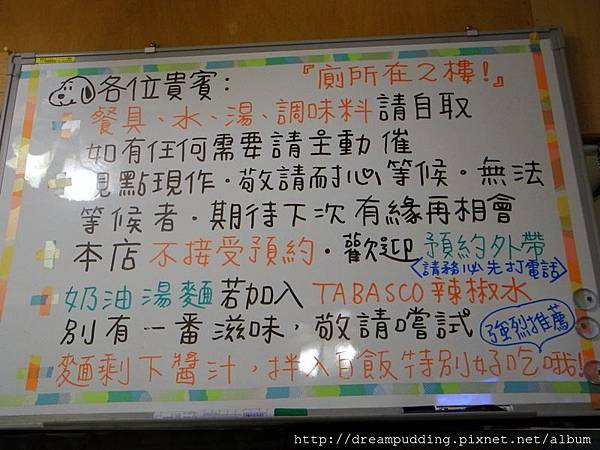 各位貴賓：『廁所在2樓！』
餐具、水、湯、調味料請自取
如有任何需要請主動 催
現點現作。敬請耐心等候。無法
等候者。期待下次有緣再相會
本店不接受預約。歡迎預約外帶
<請務必先打電話>
奶油湯麵若加入TABASCO辣椒水
別有一番滋味，敬請嚐試
強烈推薦
麵剩下醬汁，拌入白飯特別好吃哦！
http://dreampudding.pixnet.net/album